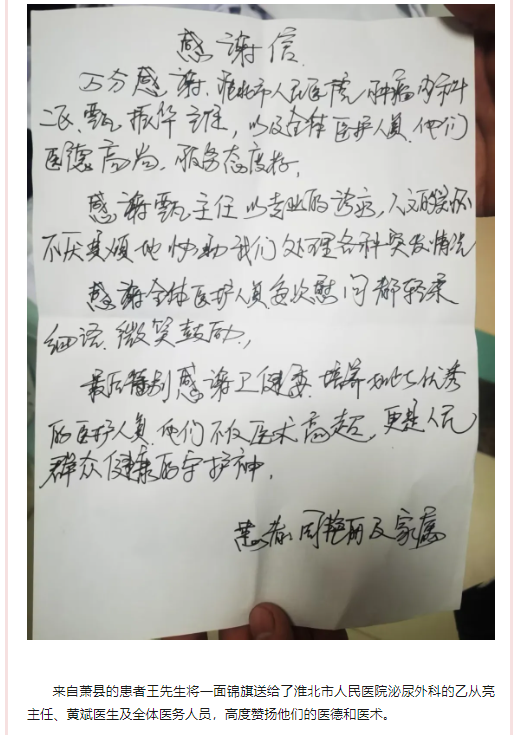 感谢信
万分感谢,淮北市人民医院肿瘤内科
二区甄振华主任,以及全体医护人员,他们
医德高尚,服务态度好,
感谢甄主任以专业的诊疗,人文的关怀
不厌其烦地协助我们处理各种突发情况
感谢全体医护人员每次慰问都轻柔
细语,微笑鼓励,
最后特别感谢卫健委,培养如此优秀
的医护人员,他们不仅医术高超,更是人民
群众健康的守护神.
患者:周艳丽及家属
来自萧县的患者王先生将一面锦旗送给了淮北市人民医院泌尿外科的乙从亮
主任、黄斌医生及全体医务人员，高度赞扬他们的医德和医术。